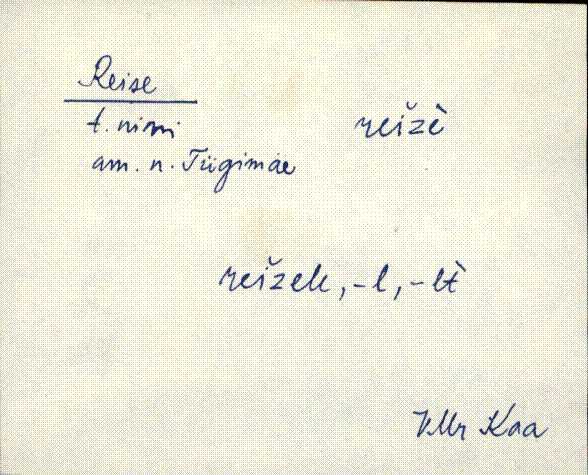 Reise
t. nimi
am. n. Tügimäe
reižè
reižele, -l, -lt̀
VMr Kaa